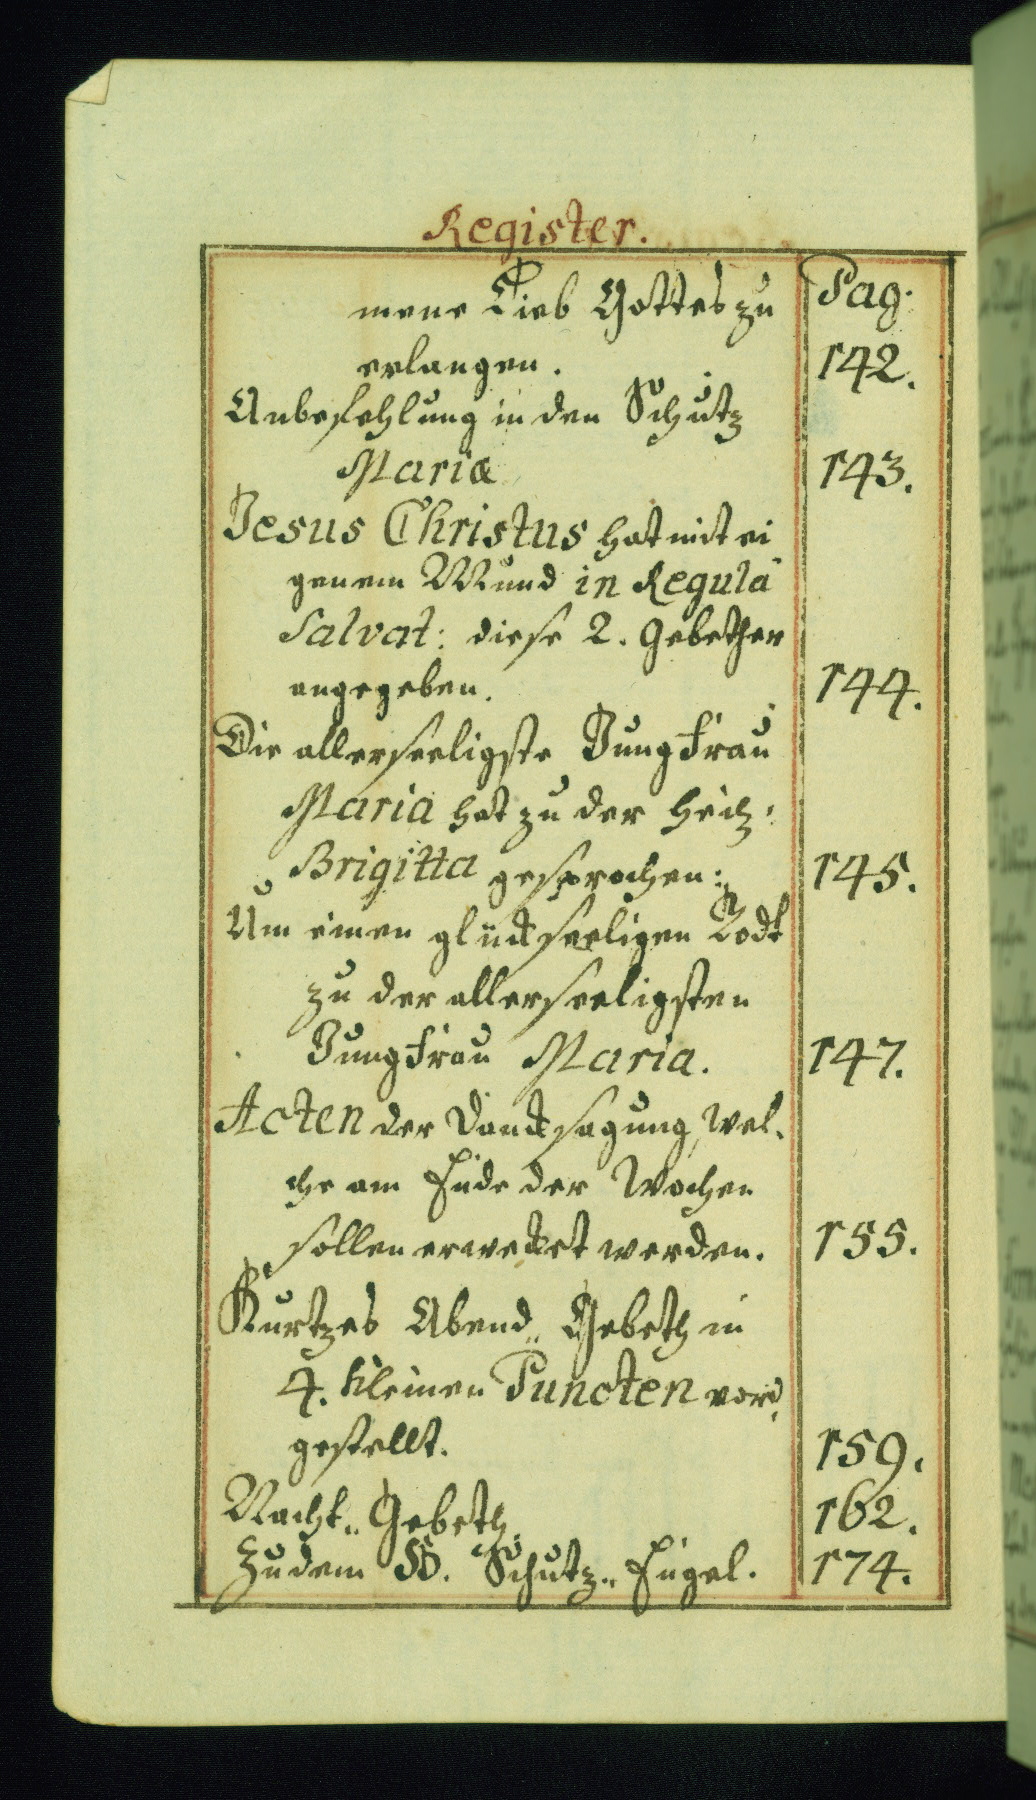 Register.
Pag.
mene Lieb Gottes zu
erlangen. 142.
Anbefehlung in den Schutz
Mariæ 143.
Jesus Christus hat mit ei
genem Mund in Regulâ
Salvat: diese 2. Gebether
angegeben. 144.
Die allerseeligste Jungfrau
Maria hat zu der Heil:
Brigitta gesprochen: 145.
Um einen glückseeligen Todt
zu der allerseeligsten
Jungfrau Maria. 147.
Acten der Dancksagung, wel-
che am Ende der Wochen
sollen erwecket werden. 155.
Kurtzes Abend„ Gebeth in
4. kleinen Puncten vor-
gestellt. 159.
Nacht„ Gebeth. 162.
Zu dem H. Schutz„ Engel. 174.